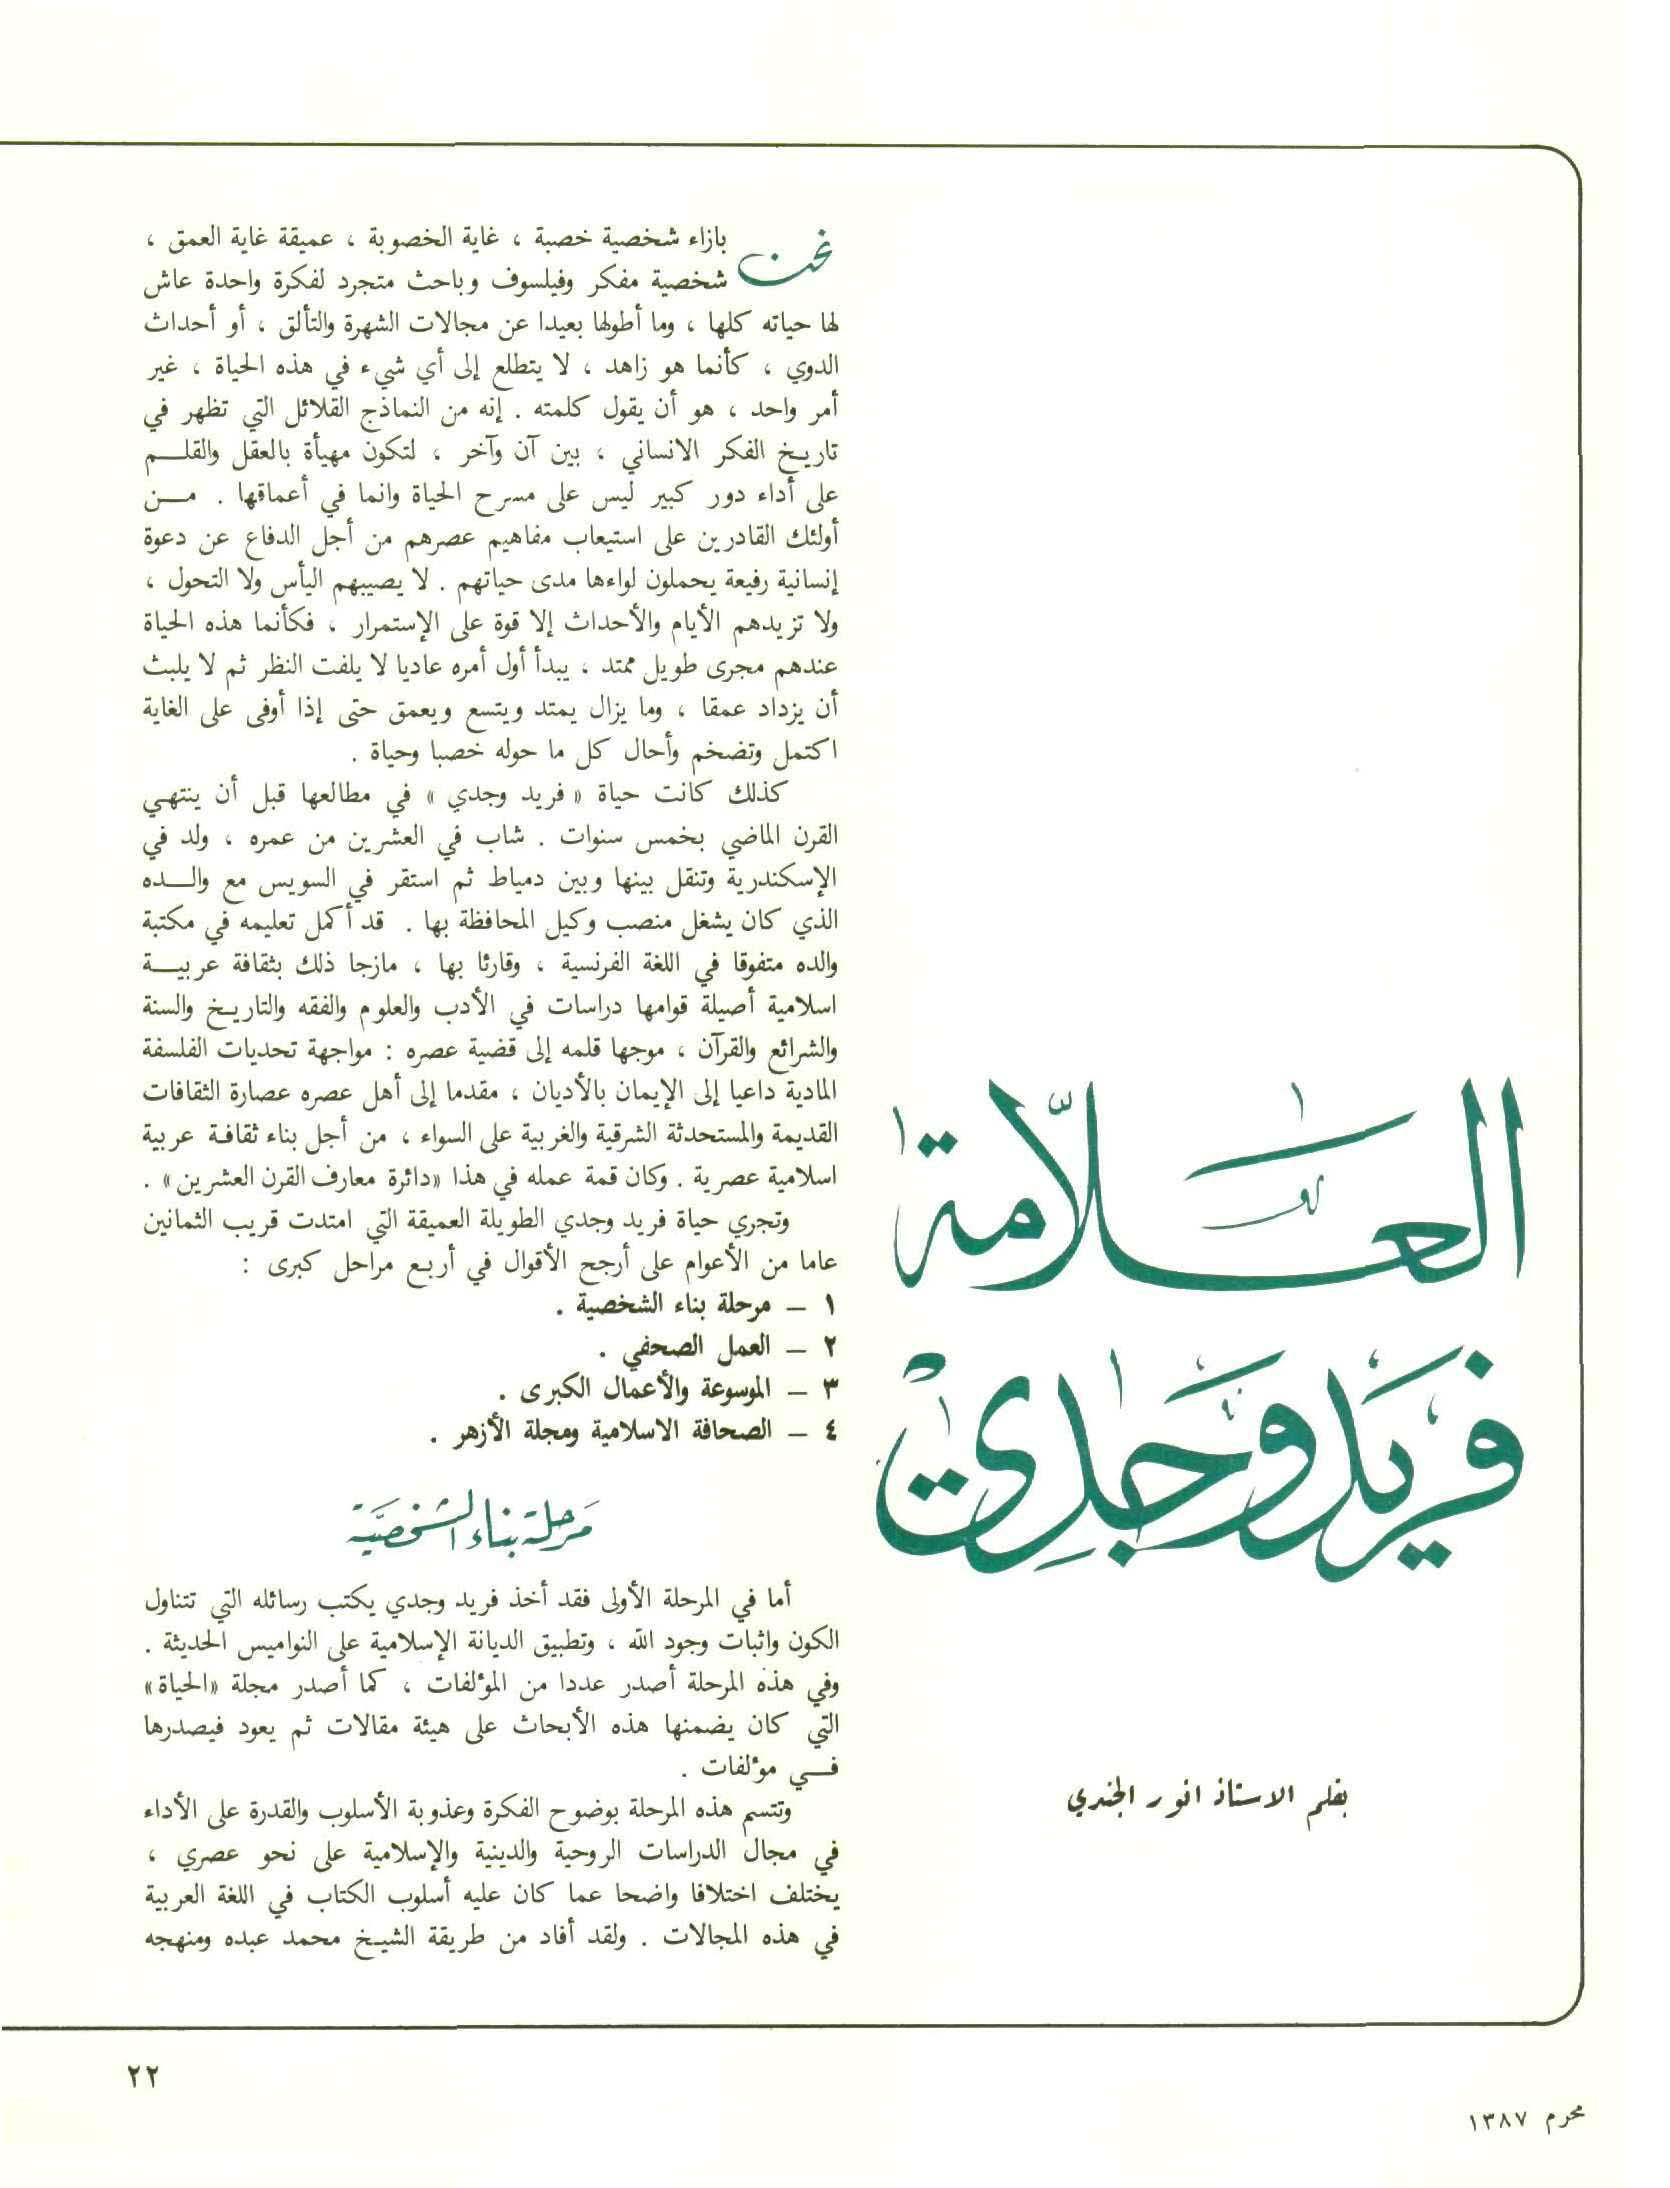 العلامة
فريد وجدي
بقلم الاستاذ انور الجندي
نحن بازاء شخصية خصبة ، غاية الخصوبة ، عميقة غاية العمق ،
شخصية مفكر وفيلسوف وباحث متجرد لفكرة واحدة عاش
لها حياته كلها ، وما أطولها بعيدا عن مجالات الشهرة والتألق ، أو أحداث
الدوي ، كأنما هو زاهد ، لا يتطلع إلى أي شيء في هذه الحياة ، غير
أمر واحد ، هو أن يقول كلمته . إنه من النماذج القلائل التي تظهر في
تاريخ الفكر الانساني ، بين آن وآخر ، لتكون مهيأة بالعقل والقلـــم
على أداء دور كبير ليس على مسرح الحياة وانما في أعماقها . مـــن
أولئك القادرين على استيعاب مفاهيم عصرهم من أجل الدفاع عن دعوة
إنسانية رفيعة يحملون لواءها مدى حياتهم . لا يصيبهم اليأس ولا التحول ،
ولا تزيدهم الأيام والأحداث إلا قوة على الإستمرار ، فكأنما هذه الحياة
عندهم مجرى طويل ممتد ، يبدأ أول أمره عاديا لا يلفت النظر ثم لا يلبث
أن يزداد عمقا ، وما يزال يمتد ويتسع ويعمق حتى إذا أوفى على الغاية
اكتمل وتضخم وأحال كل ما حوله خصبا وحياة .
كذلك كانت حياة « فريد وجدي » في مطالعها قبل أن ينتهـي
القرن الماضي بخمس سنوات . شاب في العشرين من عمره ، ولد في
الإسكندرية وتنقل بينها وبين دمياط ثم استقر في السويس مع والـــده
الذي كان يشغل منصب وكيل المحافظة بها . قد أكمل تعليمه في مكتبة
والده متفوقا في اللغة الفرنسية ، وقارئا بها ، مازجا ذلك بثقافة عربيـــة
اسلامية أصيلة قوامها دراسات في الأدب والعلوم والفقه والتاريخ والسنة
والشرائع والقرآن ، موجها قلمه إلى قضية عصره : مواجهة تحديات الفلسفة
المادية داعيا إلى الإيمان بالأديان ، مقدما إلى أهل عصره عصارة الثقافات
القديمة والمستحدثة الشرقية والغربية على السواء ، من أجل بناء ثقافـة عربية
اسلامية عصرية . وكان قمة عمله في هذا «دائرة معارف القرن العشرين» .
وتجري حياة فريد وجدي الطويلة العميقة التي امتدت قريب الثمانين
عاما من الأعوام على أرجح الأقوال في أربـع مراحل كبرى :
١ – مرحلة بناء الشخصية .
٢ – العمل الصحفي .
٣ – الموسوعة والأعمال الكبرى .
٤ – الصحافة الاسلامية ومجلة الأزهر .
مرحلة بناء الشخصية
أما في المرحلة الأولى فقد أخذ فريد وجدي يكتب رسائله التي تتناول
الكون واثبات وجود الله ، وتطبيق الديانة الإسلامية على النواميس الحديثة .
وفي هذه المرحلة أصدر عددا من المؤلفات ، كما أصدر مجلة «الحياة»
التي كان يضمنها هذه الأبحاث على هيئة مقالات ثم يعود فيصدرها
فـــي مؤلفات .
وتتسم هذه المرحلة بوضوح الفكرة وعذوبة الأسلوب والقدرة على الأداء
في مجال الدراسات الروحية والدينية والإسلامية على نحو عصري ،
يختلف اختلافا واضحا عما كان عليه أسلوب الكتاب في اللغة العربية
في هذه المجالات . ولقد أفاد من طريقة الشيخ محمد عبده ومنهجه
٢٢
محرم ١٣٨٧